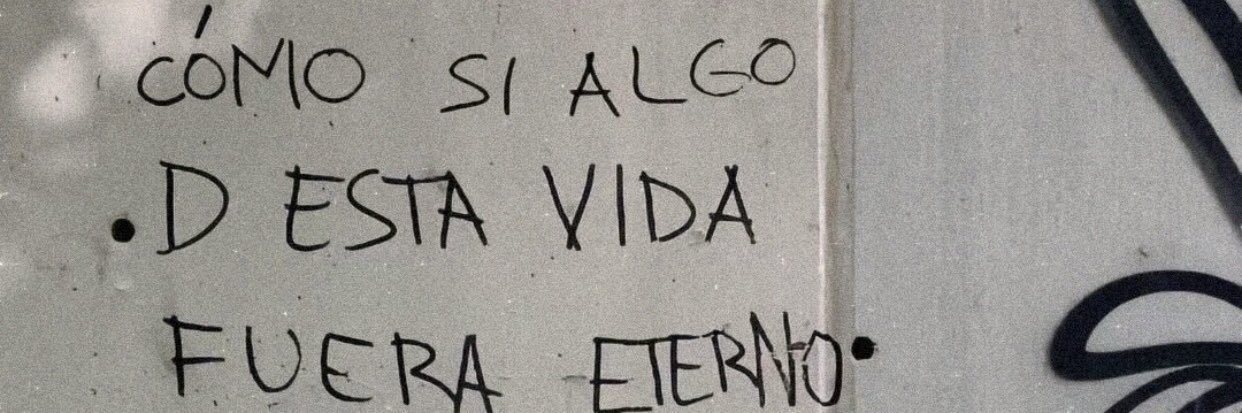 CÓMO SI ALGO
. D ESTA VIDA
FUERA ETERNO.